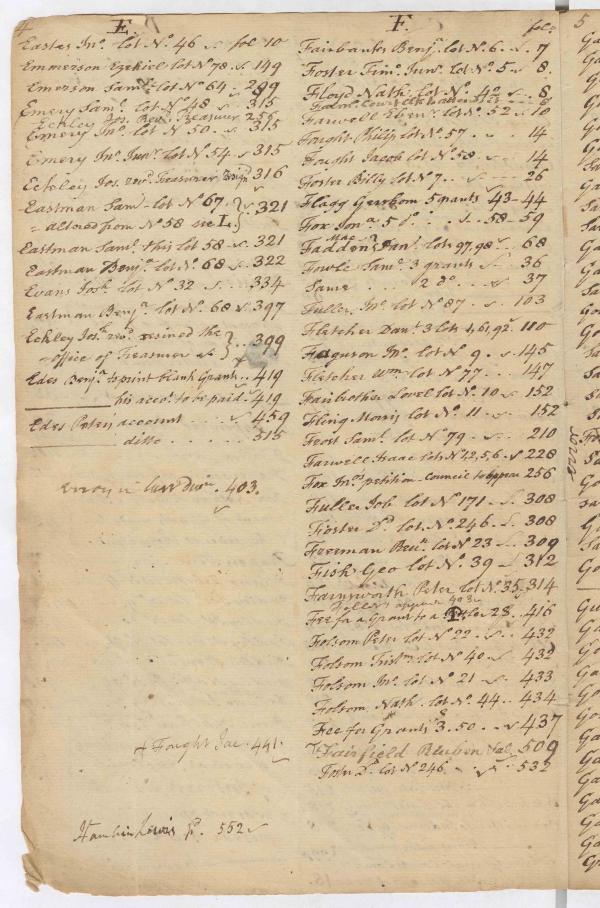 4
E.
Eastes Jno. lot No. 46 fol 10
Emmerson Ezekiel lot No. 78 149
Emerson Saml. lot No 64 299
Emery Saml. lot No 48 315
Eckley Jos. Revd. Treasurer 259
Emery Jno. lot N 50 315
Emery Jno. Junr lot N 54 315
Eckley Jos. revd. Treasurer 316
Eastman Saml lot No 67 } 321
= altered from No 58 see L. }
Eastman Saml. this lot 58 321
Eastman Benjn. lot No. 68 322
Evans Josh. lot No 32 334
Eastman Benjn. lot No. 68 397
Eckley Josh. revd. resined the } 399
office of Treasurer }
Edes Benja. to print blank Grants 419
his accot. to be paid 419
Edes Peters account 459
ditto 515
Error in 403.
+ Fought Jac. 441.
Hamlin Lewis 552
F.
fol:
Fairbanks Benj. lot No. 6 7
Foster Timo. Junr. lot No 5 8.
Floyd Nath. lot No. 42 8
Farwell Ebenr. lot No. 52 10
Fought Philip lot No. 57 14
Fought Jacob lot No. 58 14
Foster Billy lot No 7 26
Flagg Gershom 5 grants 43-44
Fox Jona. 5 do. 58-59
Mac
Fadden Danl. lots 97, 98 68
Fowle Saml. 3 grants 36
Same 2 do. 37
Fuller Jno. lot No 87 103
Fletcher Danl. 3 lots 4,61,92. 110
Farguson Jno. lot No 9 145
Fletcher Wm. lot No 77 147
Fairbrother Lovel lot No. 10 152
Fling Morris lot No. 11 152
Frost Saml. lot No. 79 210
Farwell Isaac lot No 1,2,5,6. 228
Fox Jnos. petition - Council to appear 256
Fuller Job. lot No 171 308
Foster Dd. lot No. 246. 308
Freeman Benn. lot No 23 309
Fish Geo lot No. 39 312
Farnsworth Peter lot No. 35, 314
Fee for a Grant to a 23. 416
Folsom Peter lot No 22 432
Folsom Tristm. lot No 40 432
Folsom Jno. lot No 21 433
Folsom Nath. lot No. 44 434
Fee for Grants 3.50 437
Fairfield Reuben 509
lot No 246 532
5